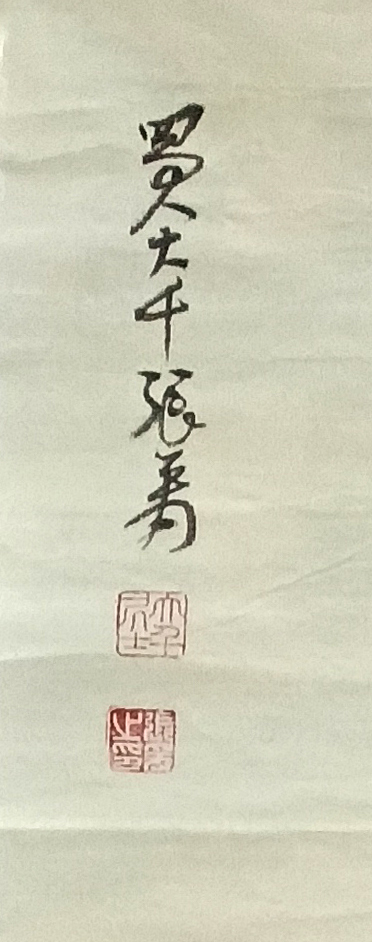 蜀人大千張爰
大千居士
張爰之印